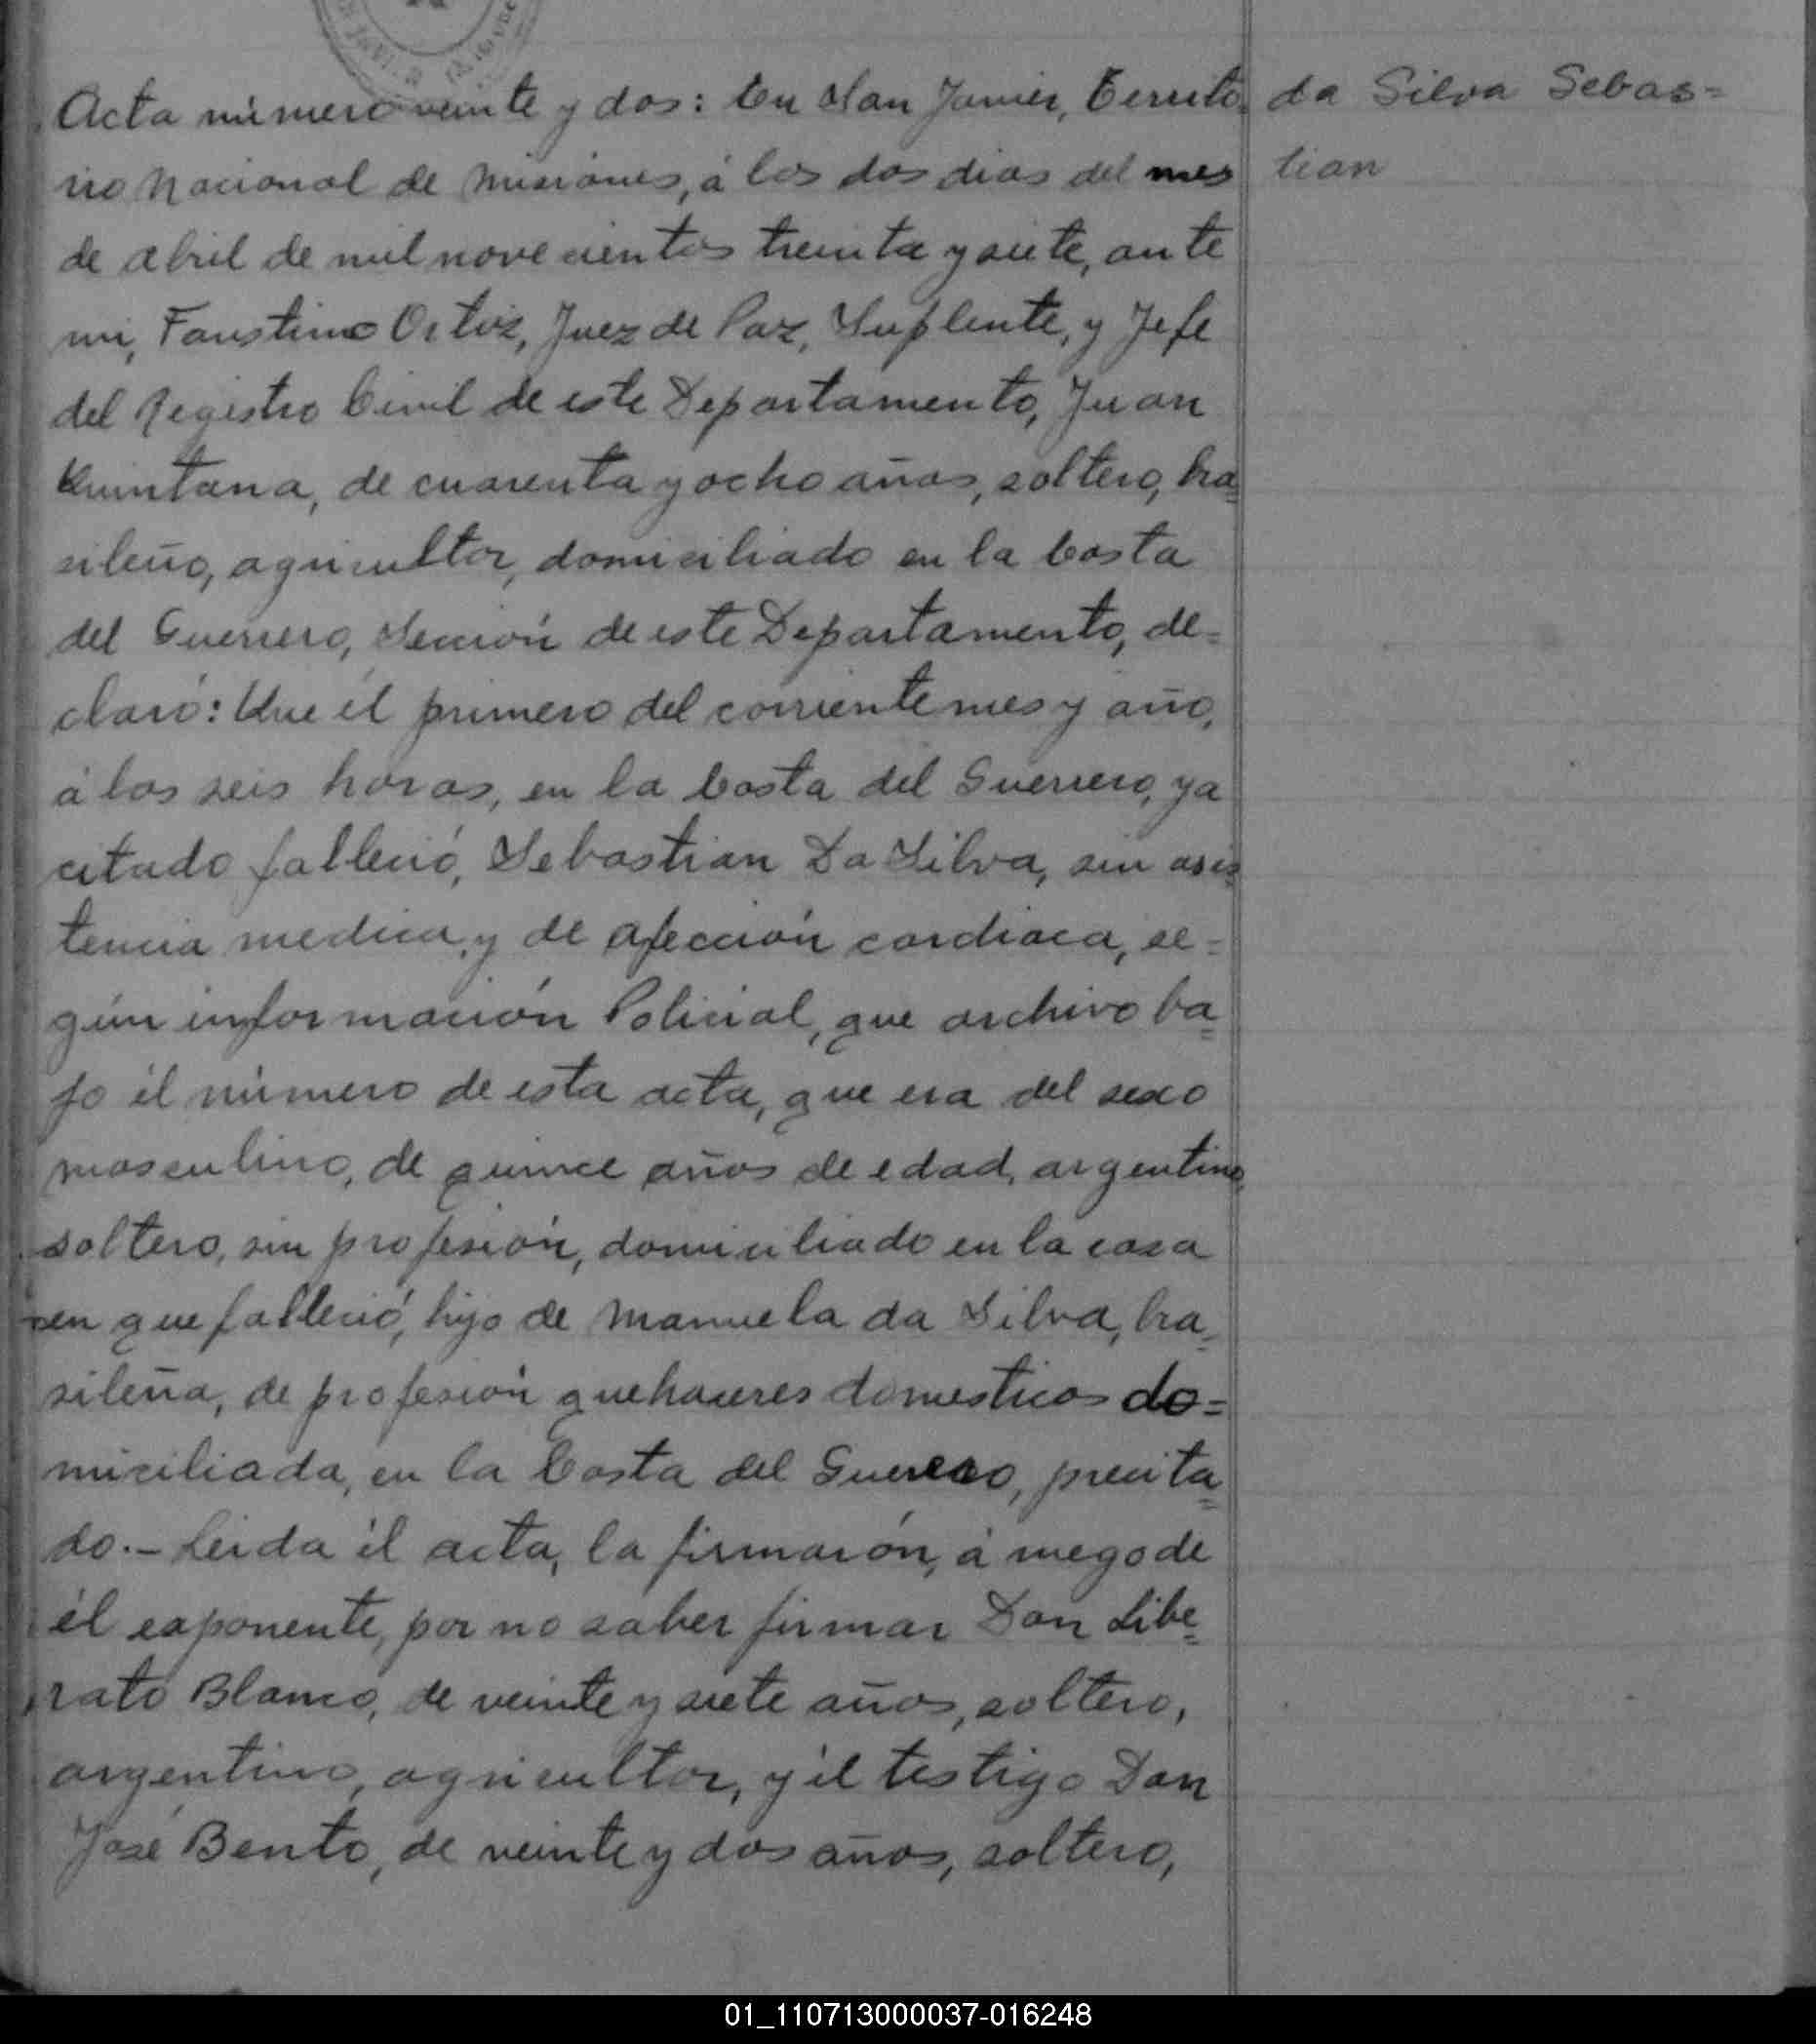 Acta número veinte y dos: En San Javier, Territo-
rio Nacional de Misiones, á los dos dias del mes
de abril de mil novecientos treinta y siete, ante
mi, Faustino Ortiz, Juez de Paz, Suplente, y Jefe
del Registro Civil de este Departamento, Juan
Quintana, de cuarenta y ocho años, soltero, bra=
sileño, agricultor, domiciliado en la Costa
del Guerrero, Sección de este Departamento, de=
claró: Que él primero del corriente mes y año,
á las seis horas, en la Costa del Guerrero, ya
citado falleció, Sebastian Da Silva, sin asis=
tencia medica, y de afección cardiaca, se=
gún información Policial, que archivo ba=
jo él número de esta acta, que era del sexo
masculino, de quince años de edad, argentino,
soltero, sin profesión, domiciliado en la casa
en que falleció, hijo de Manuela da Silva, bra=
sileña, de profesión quehaceres domesticos do=
miciliada, en la Costa del Guerrero, precita=
do.- Leida él acta, la firmarón, á ruego de
él exponente, por no saber firmar Don Libe=
rato Blanco, de veinte y siete años, soltero,
argentino, agricultor, y él testigo Don
José Bento, de veinte y dos años, soltero,
da Silva Sebas=
tian
01_110713000037-016248